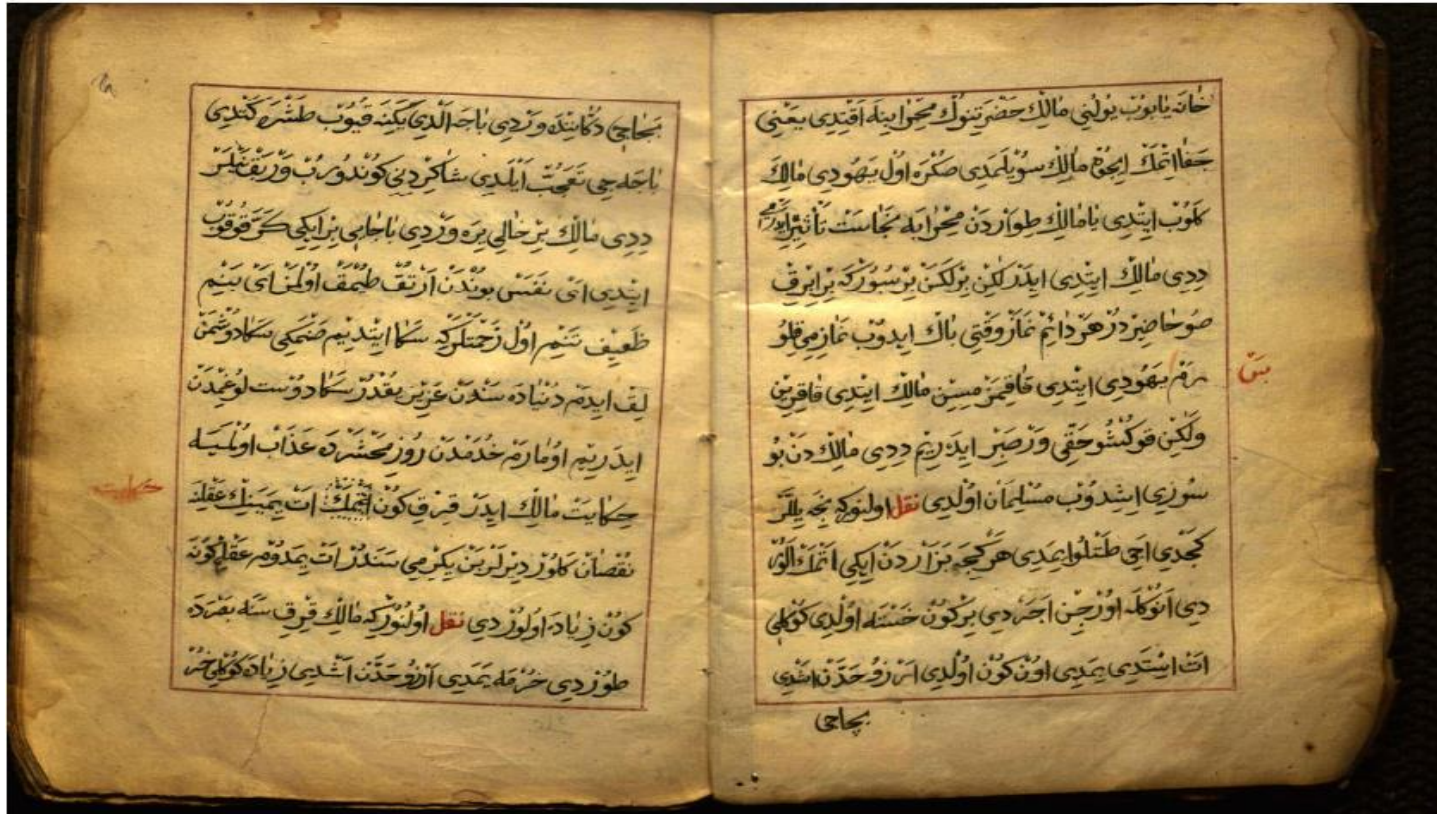 خانه يابوب يولني مالك حضرتنوك محرابينه اقتدي يعني
جفا اتمك ايجون مالك سويلمدي صكره اول يهودي مالك
كلوب ايتدي يا مالك طواردن محرابه نجاست تأثير ايدرمي
ددي مالك ايتدي ايدر لكن بر لكن بر سبورکه بر ابرق
صو حاضر در هر دائم نماز وقتي پاك ايدوب نماز مي قلو
رم يهودي ايتدي قاقيمزمسن مالك ايتدي قاقرين
بن
ولكن قوكشو حقي ور صبر ايدريم ددي مالك دن بو
سوزي اشدوب مسلمان اولدي نقل اولنور كه نجه ييللر
كجدي اجي طتلو يمدي هر كيجه بزاردن ايكي اتمك الور
دي انوكله اورجن اجردي بر كون خسته اولدي كوكلي
ات استدي يمدي اون كون اولدي ارزو حددن اشدي
بجاجي
بجاجي دكاننده وردي باجه الدي يكينه قيوب طشره كتدي
باجه جي تعجب ايلدي شاكردني كوندروب ور بق نيلر
ددي مالك بر خالي يره وردي باجايي بر ايكي كره قوقوب
ايتدي اي نفس بوندن ارتق طيمق اولمز اي بنم
ظعيف تنم اول زحمتلر كه سكا ايتديم صنمكي سكا دوشمن
لق ايدم دنياده سندن عزيز يقدر سكا دوست لوغمدن
ايدريم اومارم خدمدن روز محشرده عذاب اولميه
حكايت
حكايت مالك ايدر قرق كون اتمك ات يمينك عقلنه
نقصان كلور ديرلر بن يكرمي سندر ات يمدوم عقلم كوندن
كون زياده اولور دي نقل اولنور كه مالك قرق سنه بصره ده
طوردي خرمه يمدي ارزو حددن اشدي زياده كوكلي خر